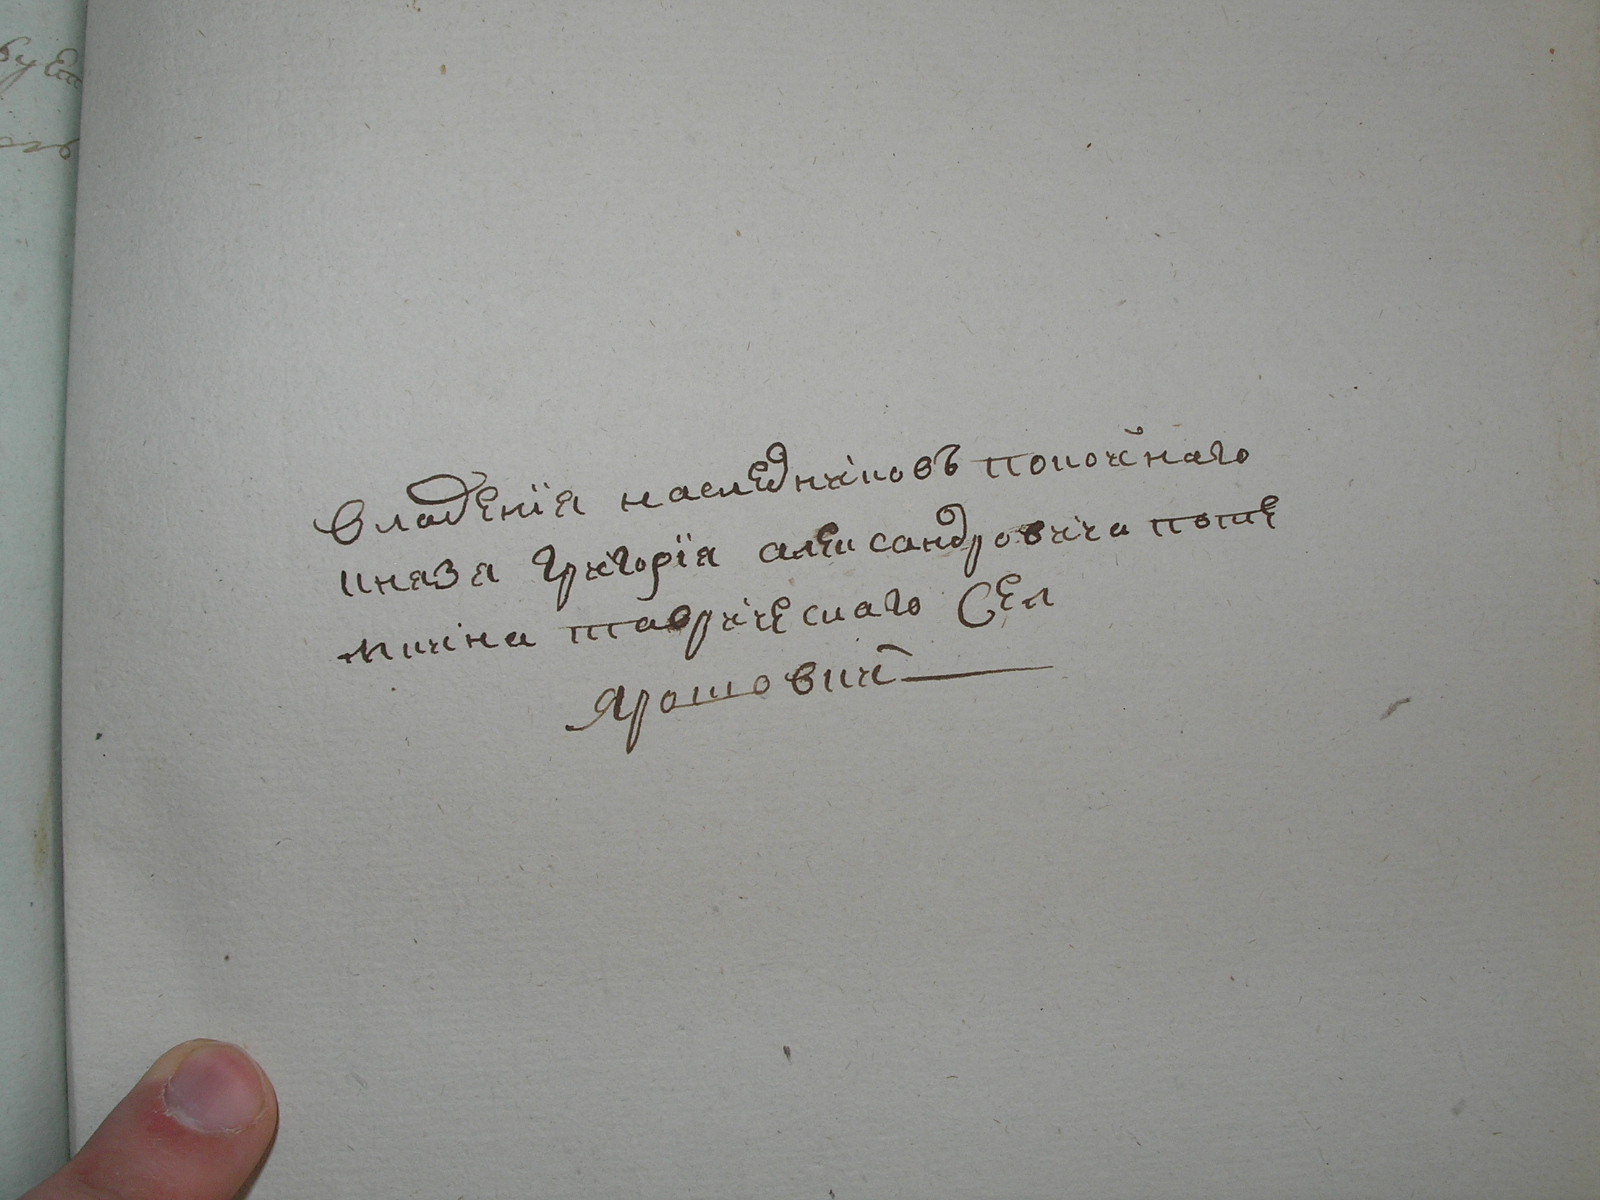 владенїя наследниковъ покойнаго
князя григорїя александровича поте
мкина таврическаго Сел
Ярошовичъ